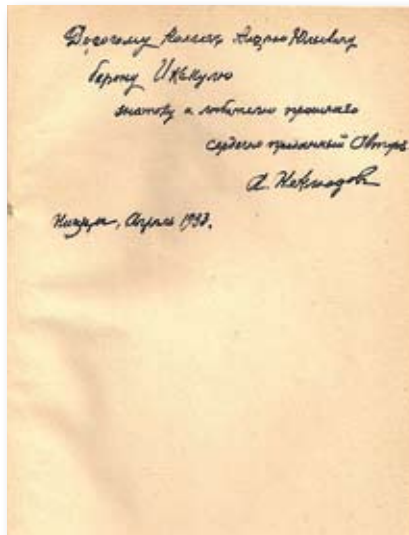 Дорогому Андрею Юльевичу
барону Икскулю
знатоку и любителю прошлаго
сердечно преданный Авторъ
А. Неклюдовъ
Ницца, Апрѣль